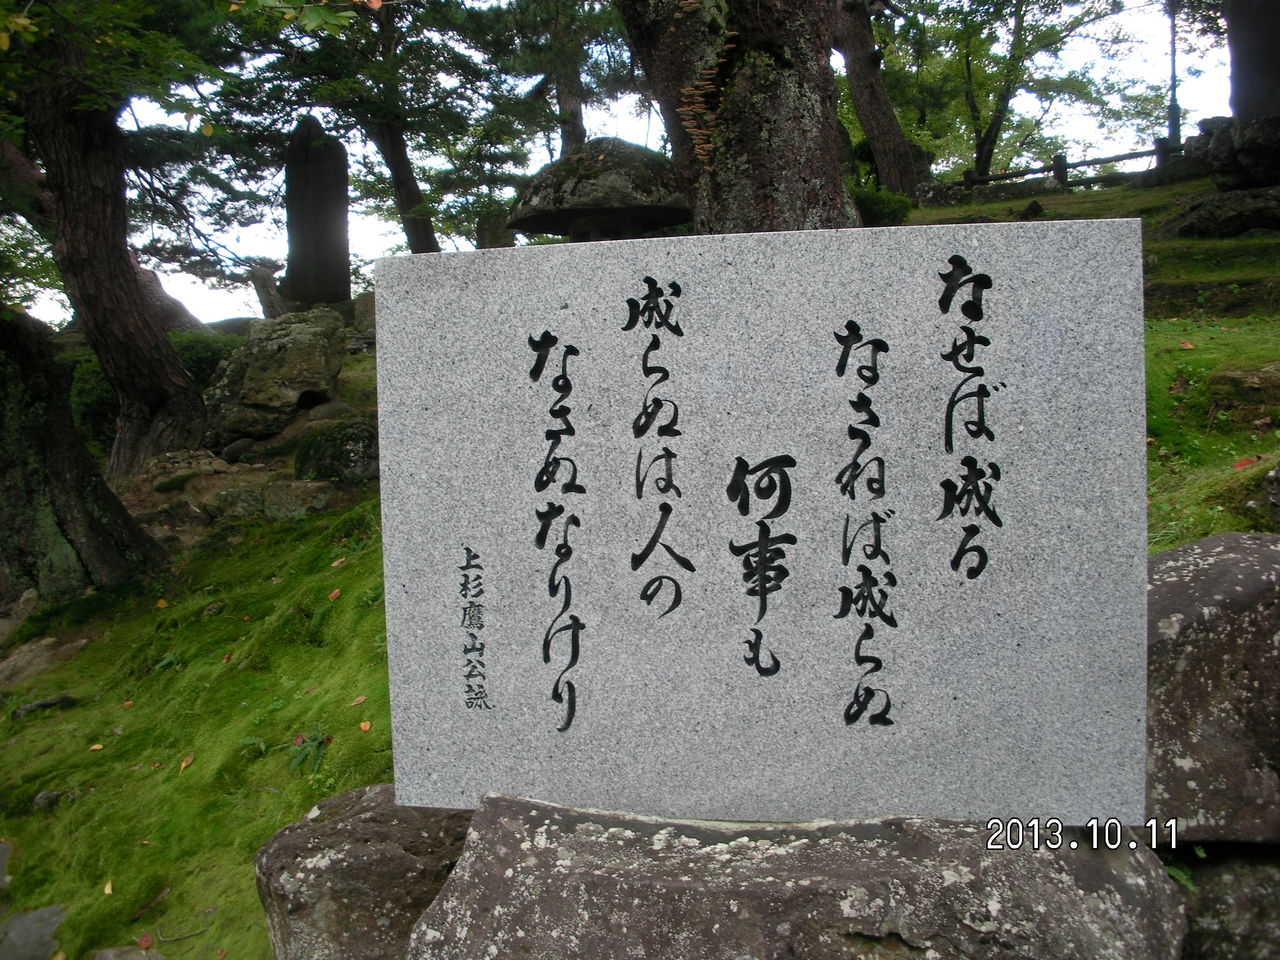 なせば成る
なさねば成らぬ
何事も
成らぬは人の
なさぬなりけり
上杉鷹山公詠
2013.10.11